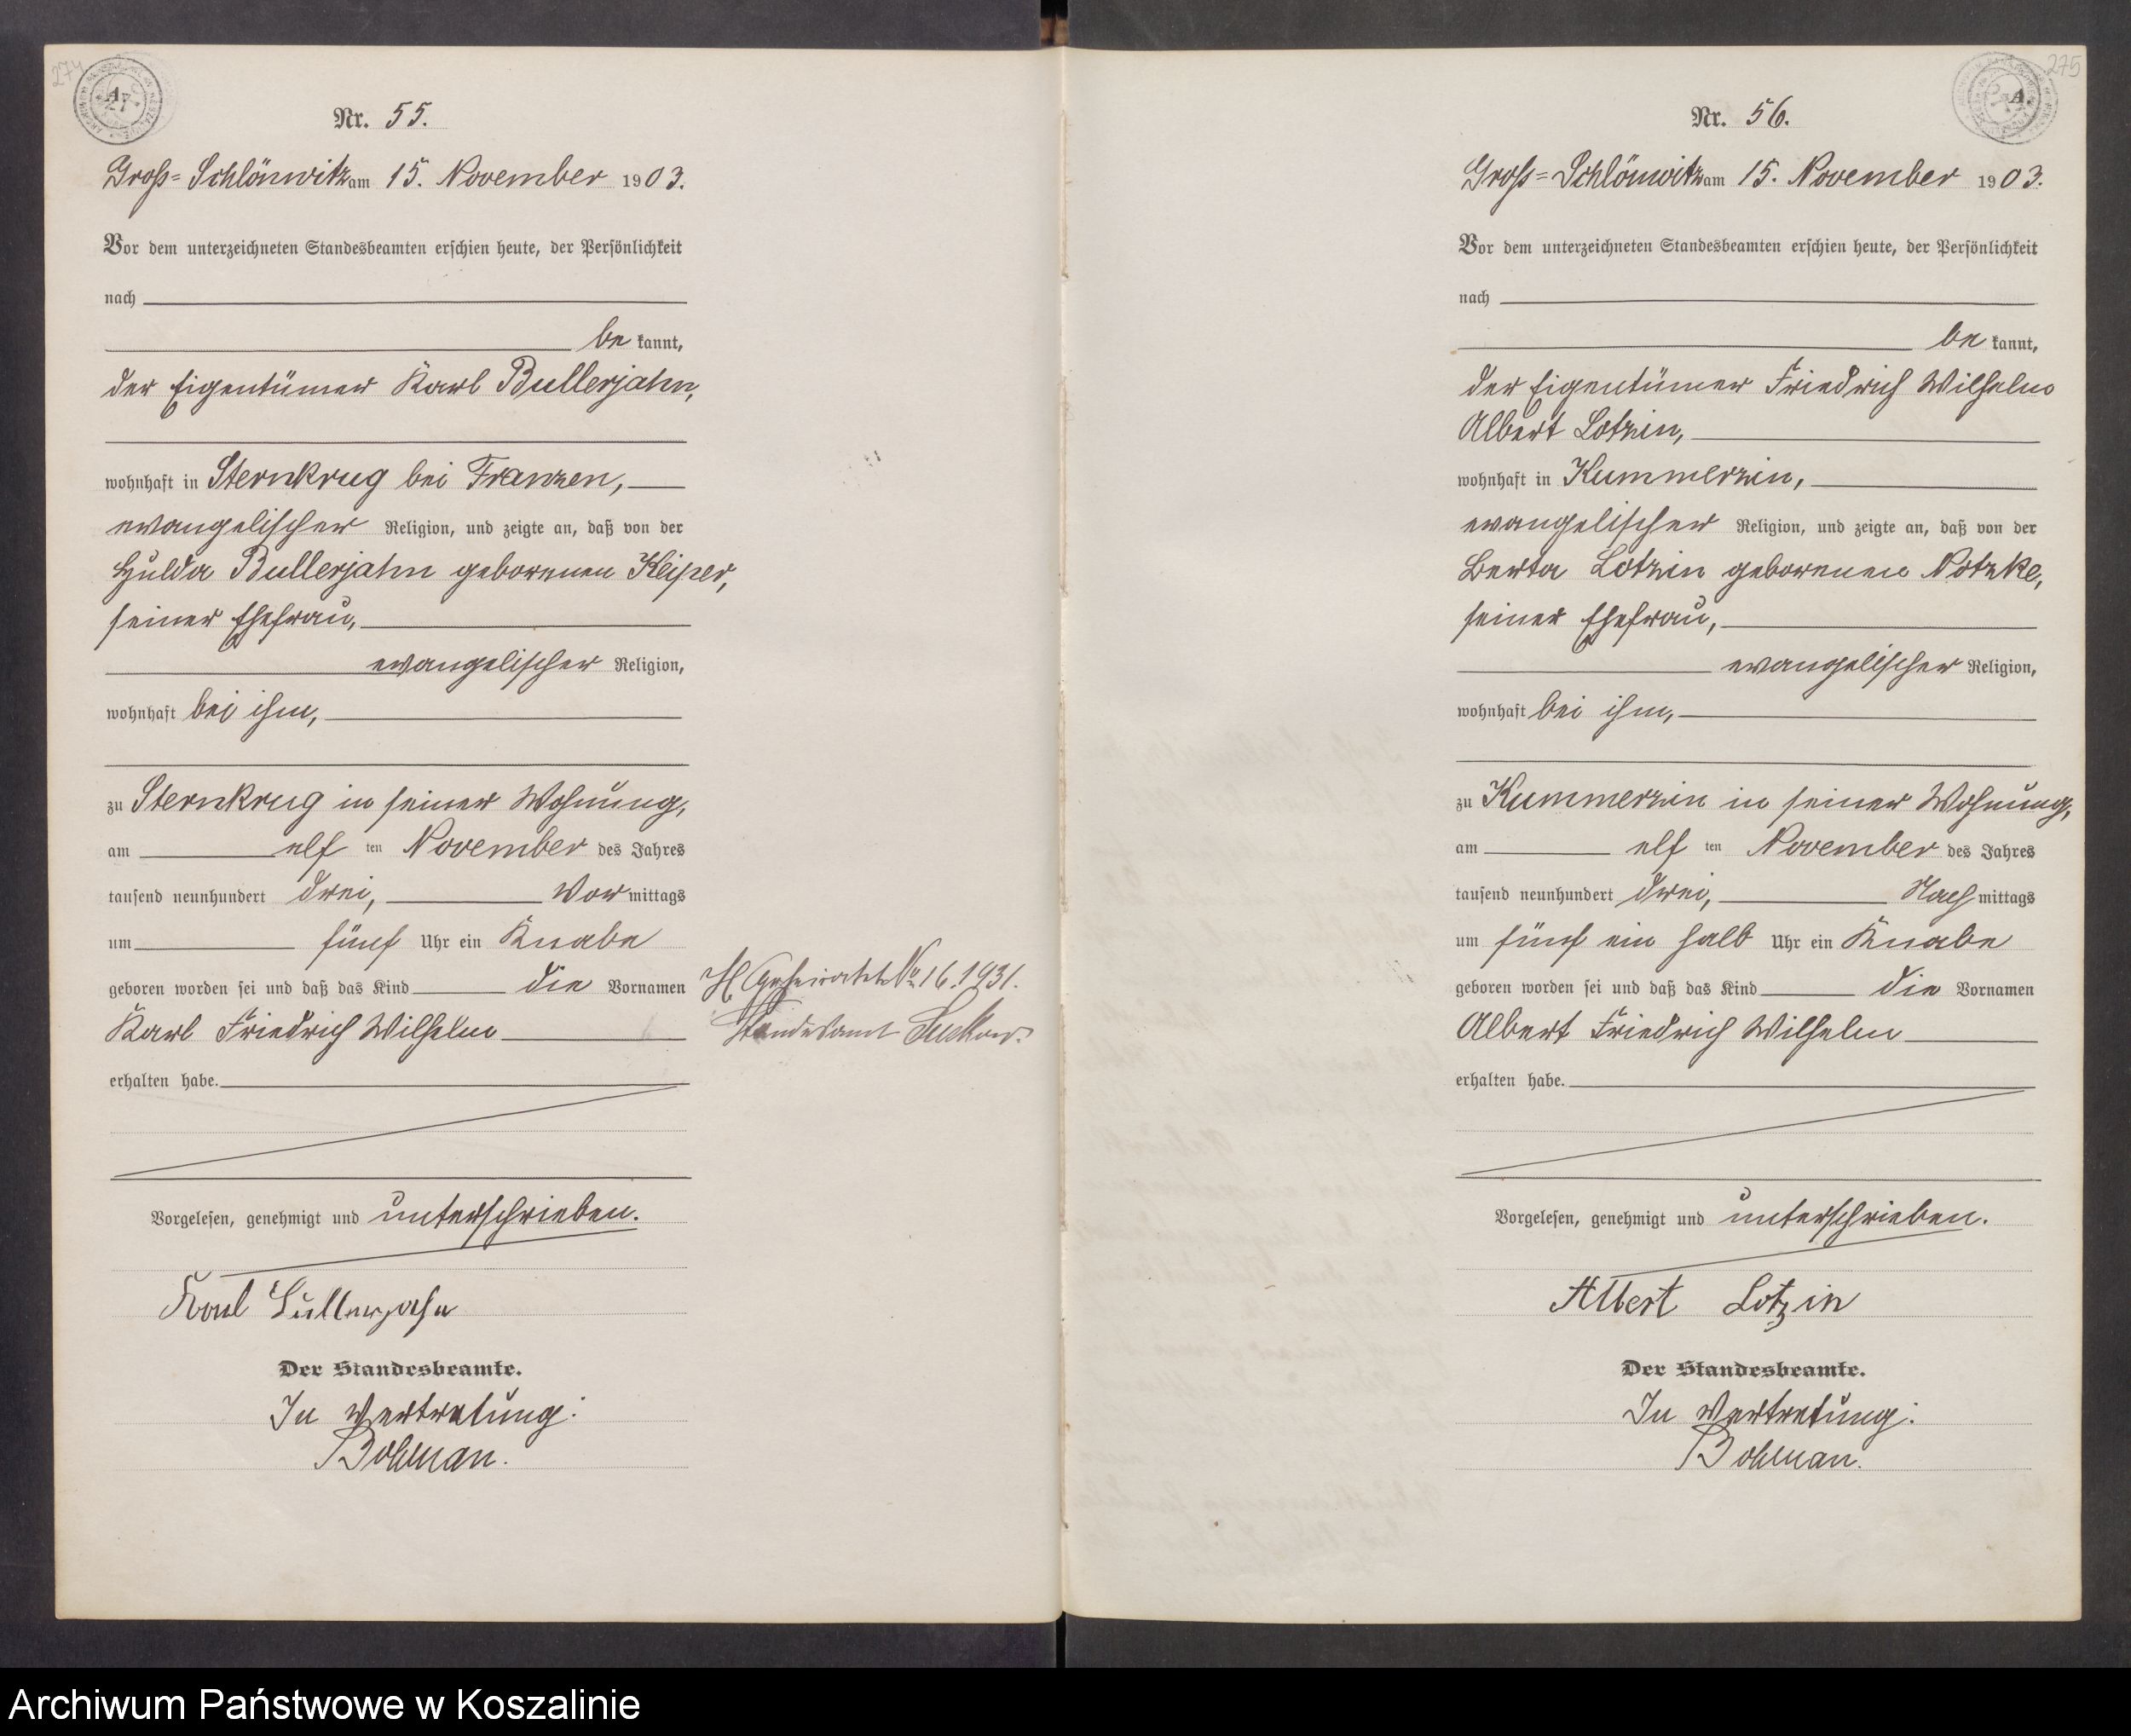 274
Nr. 55.
Groß-Schlönwitz am 15. November 1903.
Vor dem unterzeichneten Standesbeamten erschien heute, der Persönlichkeit
nach
be kannt,
der Eigentümer Karl Bullerjahn,
wohnhaft in Sternkrug bei Franzen,
evangelischer Religion, und zeigte an, daß von der
Hulda Bullerjahn geborenen
seiner Ehefrau,
evangelischer Religion,
wohnhaft bei ihm,
zu Sternkrug in seiner Wohnung,
am elf ten November des Jahres
tausend neunhundert drei, Vor mittags
um fünf Uhr ein Knabe
geboren worden sei und daß das Kind die Vornamen
Karl Friedrich Wilhelm
erhalten habe.
Vorgelesen, genehmigt und unterschrieben.
Karl Bullerjahn
Der Standesbeamte.
In Vertretung:
Bohman.
Geheiratet No 16.1931.
Standesamt
275
Nr. 56.
Groß-Schlönwitz am 15. November 1903.
Vor dem unterzeichneten Standesbeamten erschien heute, der Persönlichkeit
nach
be kannt,
der Eigentümer Friedrich Wilhelm
Albert Lotzin,
wohnhaft in Kummerzin,
evangelischer Religion, und zeigte an, daß von der
Berta Lotzin geborenen Notzke,
seiner Ehefrau,
evangelischer Religion,
wohnhaft bei ihm,
zu Kummerzin in seiner Wohnung,
am elf ten November des Jahres
tausend neunhundert drei, Nach mittags
um fünf ein halb Uhr ein Knabe
geboren worden sei und daß das Kind die Vornamen
Albert Friedrich Wilhelm
erhalten habe.
Vorgelesen, genehmigt und unterschrieben.
Albert Lotzin
Der Standesbeamte.
In Vertretung:
Bohman.
Archiwum Państwowe w Koszalinie